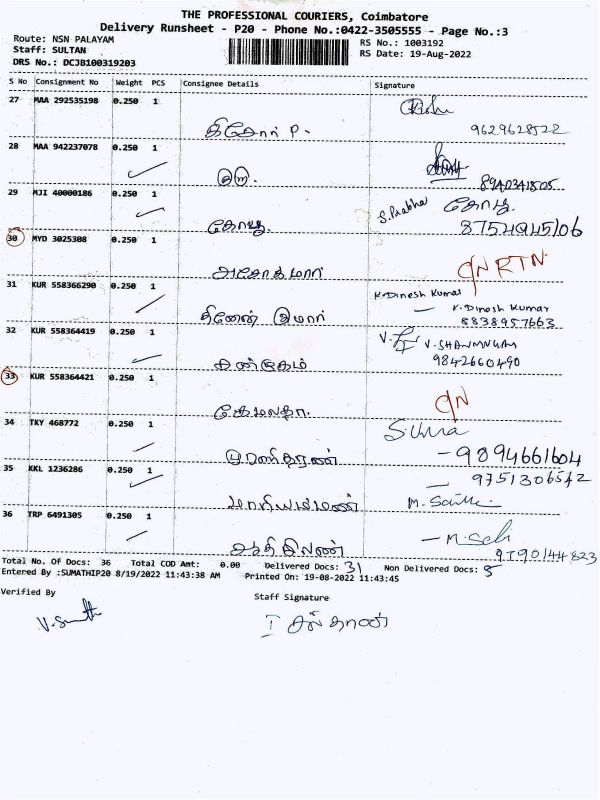 THE PROFESSIONAL COURIERS, Coimbatore
Delivery Runsheet - P20 - Phone No.:0422-3505555 - Page No.:3
Route: NSN PALAYAM
RS No.: 1003192
Staff: SULTAN
RS Date: 19-Aug-2022
DRS No.: DCJB100319203
S No Consignment No Weight PCS Consignee Details Signature
27 MAA 292535198 0.250 1
கிஷோர் P. 9629628522
28 MAA 942237078 0.250 1
8940341805
29 MJI 40000186 0.250 1
S. Prabha கோபு.
கோபு. 8754945106
30 MYD 3025308 0.250 1
அசோக்குமார் C/N RTN.
31 KUR 558366290 0.250 1
K. Dinesh Kumar
தினேஷ் குமார் K. Dinesh Kumar
8838957663
32 KUR 558364419 0.250 1
V. SHANMUGAM
சண்முகம் 9842660490
33 KUR 558364421 0.250 1
ஹேமலதா. C/N
34 TKY 468772 0.250 1
முரளிதரன் - 9894661604
35 KKL 1236286 0.250 1
9751306542
மாரியம்மாள்
36 TRP 6491305 0.250 1
9790144823
Total No. Of Docs: 36 Total COD Amt: 0.00 Delivered Docs: 31 Non Delivered Docs: 5
Entered By :SUMATHIP20 8/19/2022 11:43:38 AM Printed On: 19-08-2022 11:43:45
Verified By
Staff Signature
I சுல்தான்